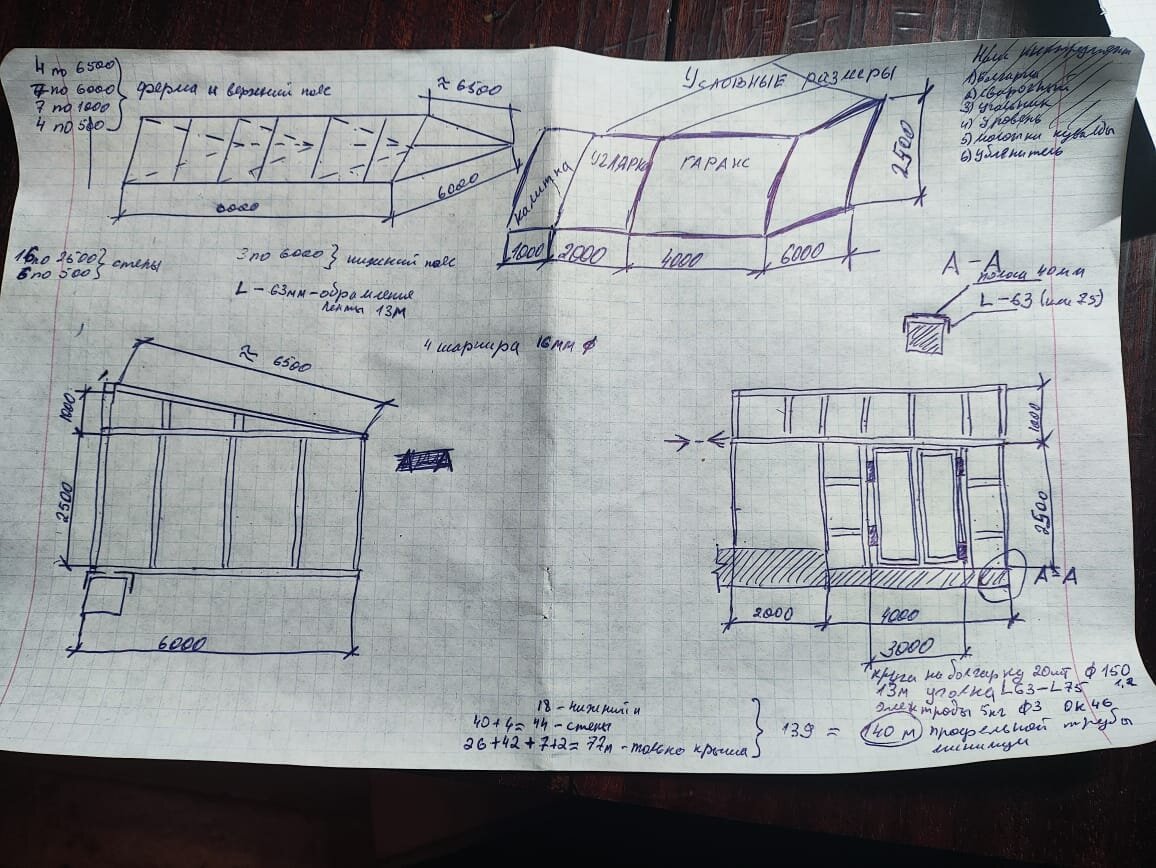 4 по 6500
7 по 6000
7 по 1000
4 по 500
ферма и верхний пояс
≈ 6500
6000
6000
Условные размеры
калитка
УГЛЯРКА
ГАРАЖ
2500
1000
2000
4000
6000
1) Болгарка
2) Сварочный
3) Угольник
4) Уровень
5) молотки кувалды
6) Удленитель
16 по 2500
6 по 500
стены
3 по 6000 } нижний пояс
L – 63мм – обрамления
ленты 13м
А – А
полоса 40мм
L – 63 (или 75)
4 шарнира 16мм ф
≈ 6500
1000
2500
6000
1000
2500
А – А
2000
4000
3000
круга на болгарку 20шт ф 150
1,2
13м уголка L63–L75
электроды 5кг ф3 ОК 46
18 – нижний п
40 + 4 = 44 – стены
26 + 42 + 7 + 2 = 77м – только крыша
139 = 140 м профельной трубы
минимум